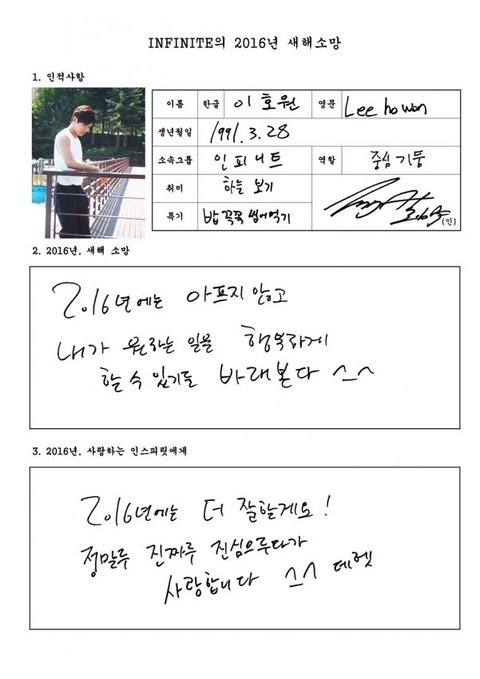 INFINITE의 2016년 새해소망
1. 인적사항
이름 한글 이호원 영문 Lee howon
생년월일 1991. 3. 28
소속그룹 인피니트 역할 중심기둥
취미 하늘 보기
특기 밥 꼭꼭 씹어먹기
(인)
2. 2016년, 새해 소망
2016년에는 아프지 않고
내가 원하는 일을 행복하게
할 수 있기를 바래본다 ^^
3. 2016년, 사랑하는 인스피릿에게
2016년에는 더 잘할게요!
정말루 진짜루 진심으루다가
사랑합니다 ^^ 데헷